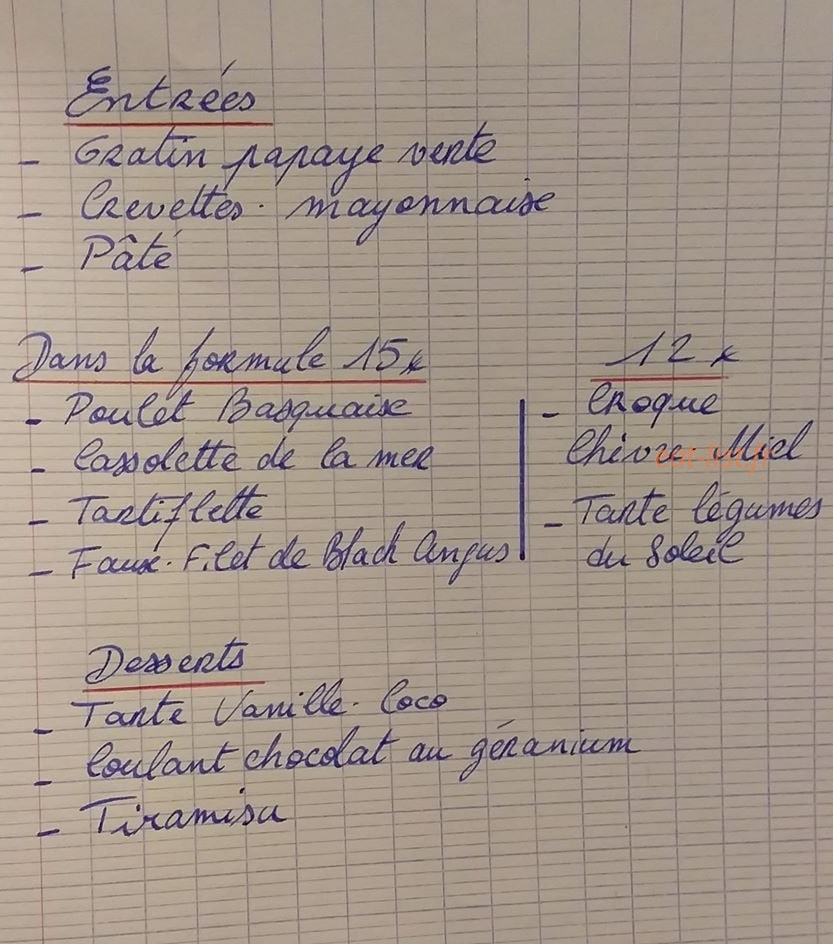 Entrées
- Gratin papaye verte
- Crevettes. mayonnaise
- Pâté
Dans la formule 15€
- Poulet Basquaise
- Cassolette de la mer
- Tartiflette
- Faux. Filet de Black Angus
12€
- Croque
Chèvre Miel
- Tarte légumes
du Soleil
Desserts
- Tarte Vanille. Coco
- Coulant chocolat au géranium
- Tiramisu